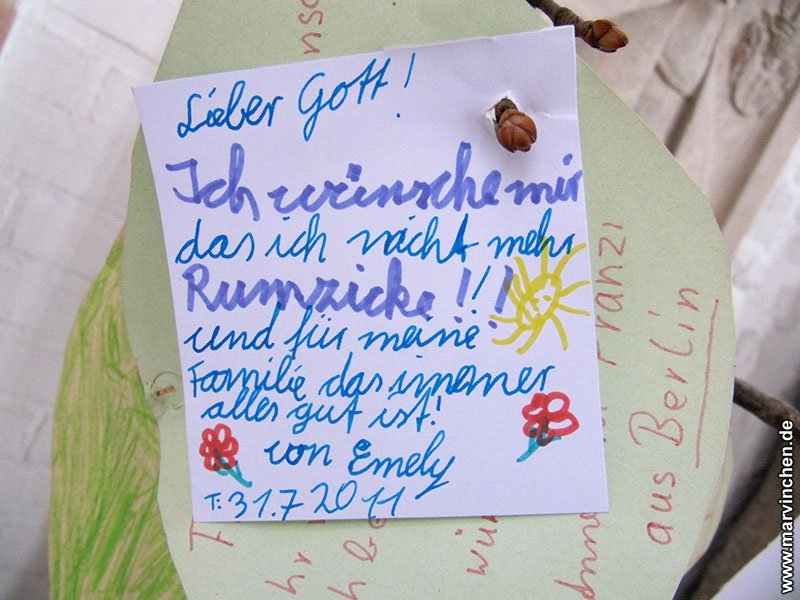 Lieber Gott!
Ich wünsche mir
das ich nicht mehr
Rumzicke!!!
und für meine
Familie das immer
alles gut ist!
von Emely
T: 31.7 2011
Franzi
aus Berlin
www.marvinchen.de